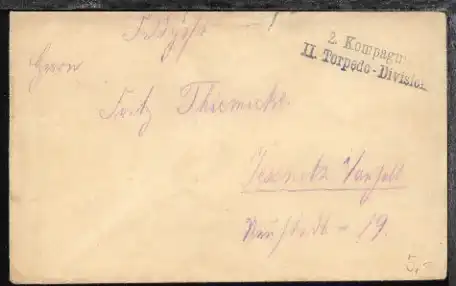 Feldpost
2. Kompagn
II. Torpedo-Division
Herrn
Fritz Thiemicke
Jessnitz i/Anhalt
Neustadt - 19.